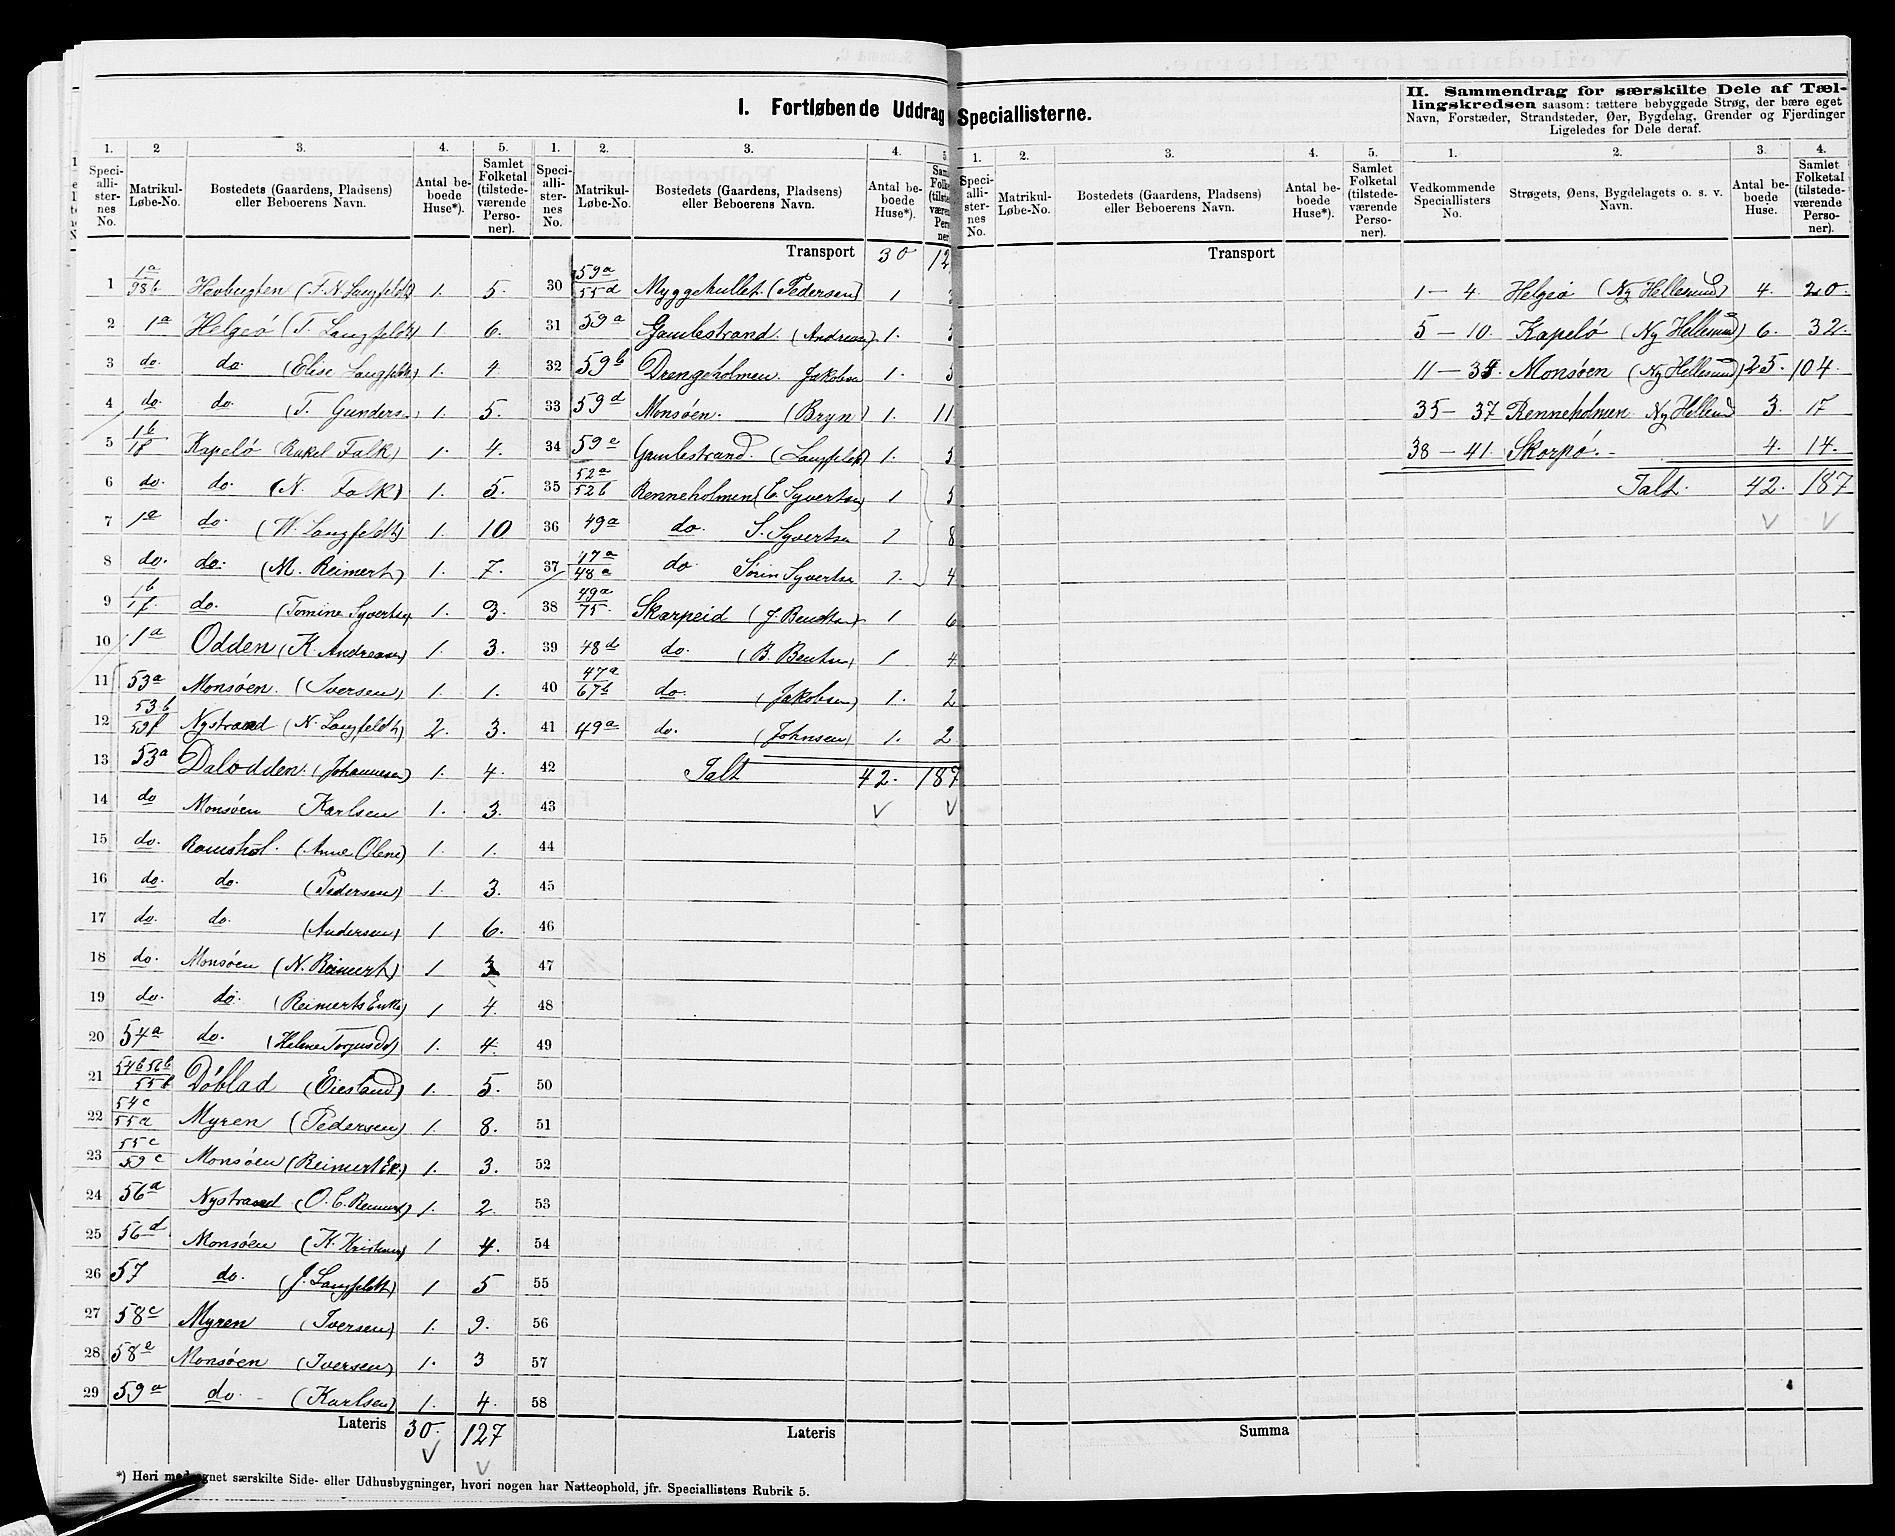 I. Fortløbende Uddrag Speciallisterne.
II. Sammendrag for særskilte Dele af Tæl-
lingskredsen saasom: tættere bebyggede Strøg, der bære eget
Navn, Forstæder, Strandsteder, Øer, Bygdelag, Grender og Fjerdinger
Ligeledes for Dele deraf.
1. 2 3. 4. 5. 1. 2. 3. 4. 5. 1. 2. 3. 4. 5. 1. 2. 3. 4.
Speci-alli-ster-nes No. Matrikul-Løbe-No. Bostedets (Gaardens, Pladsens) eller Beboerens Navn. Antal be-boede Huse*). Samlet Folketal (tilstede-værende Perso-ner).
Speci-alli-ster-nes No. Matrikul-Løbe-No. Bostedets (Gaardens, Pladsens) eller Beboerens Navn. Antal be-boede Huse*).
Speci-alli-ster-nes No. Matrikul-Løbe-No. Bostedets (Gaardens, Pladsens) eller Beboerens Navn. Antal be-boede Huse*). Samlet Folketal (tilstede-værende Perso-ner).
Vedkommende Speciallisters No. Strøgets, Øens, Bygdelagets o. s. v. Navn. Antal be-boede Huse. Samlet Folketal (tilstede-værende Perso-ner).
1 1a/98b Havbugten (T. N. Langfeldt) 1. 5.
2 1a Helgeö (T. Langfeldt) 1 6.
3 do. do. (Elise Langfeldt) 1. 4.
4 do. do. (T. Gunders) 1. 5.
5 1b/18 Kapelö (Rakel Falk) 1. 4.
6 do. do. (N. Falk) 1. 5.
7 1a do. (W. Langfeldt) 1. 10
8 do. do. (M. Reimert) 1. 7.
9 do. (Tomine Syverts) 1. 3.
10 1a Odden (K. Andreasen) 1. 3.
11 53a Monsöen. (Iversen) 1. 1.
12 53b/59f Nystrand (N. Langfeldt) 2. 3.
13 53a Dalodden. (Johannesen) 1. 4.
14 do Monsöen Karlsen 1. 3.
15 do. Ramshol. (Anne Olene) 1. 1.
16 do. do. (Pedersen) 1 3.
17 do. do. (Andersen) 1 6.
18 do. Monsöen (N. Reimert) 1 3
19 do. do. (Reimerts Enke) 1 4.
20 54a do. (Helene Torjusd) 1. 4.
21 54b 56b/55b Döblad (Eiesland) 1. 5.
22 54c/55a Myren (Pedersen) 1. 8.
23 55c/59c Monsöen (Reimert Ek.) 1. 3.
24 56a Nystrand (O. C. Reimert) 1. 2.
25 56d Monsöen (K. Kristensen) 1 4.
26 57 do. (J. Langfeldt) 1 5
27 58c Myren Iversen) 1. 9.
28 58e Monsöen (Iversen) 1. 3
29 59a do. (Karlsen) 1. 4.
Lateris 30. 127
Transport 30 12
30 59a/55d Myggehullet. (Pedersen) 1
31 59a Gamlestrand. (Andreasen) 1.
32 59b Drengeholmen. Jakobsen 1.
33 59d Monsöen. (Bryn) 1. 11
34 59e Gamlestrand. (Langfeldt) 1. 5
35 52a/52b Renneholmen (E. Syvertsen) 1 5
36 49a do. S. Syvertsen 1 8
37 47a/48c do Sörin Syvertsen 1. 4
38 49a/75. Skarpeid (J. Bendtsen) 1 6
39 48d do. (B. Bentsen) 1 4
40 47a/67b do. (Jakobsen) 1. 2
41 49a do. (Johnsen) 1. 2
42 Ialt 42. 187
43
44
45
46
47
48
49
50
51
52
53
54
55
56
57
58
Lateris
Transport
Summa
1 – 4. Helgeö (Ny Hellesund) 4. 20.
5 – 10. Kapelö (Ny Hellesund) 6. 32.
11 – 34. Monsöen (Ny Hellesund) 25. 104.
35 – 37 Renneholmen Ny Hellesund 3. 17
38 – 41. Skorpö. – 4. 14.
Ialt. 42. 187
*) Heri egnet særskilte Side- eller Udhusbygninger, hvori nogen har Natteophold, jfr. Speciallistens Rubrik 5.